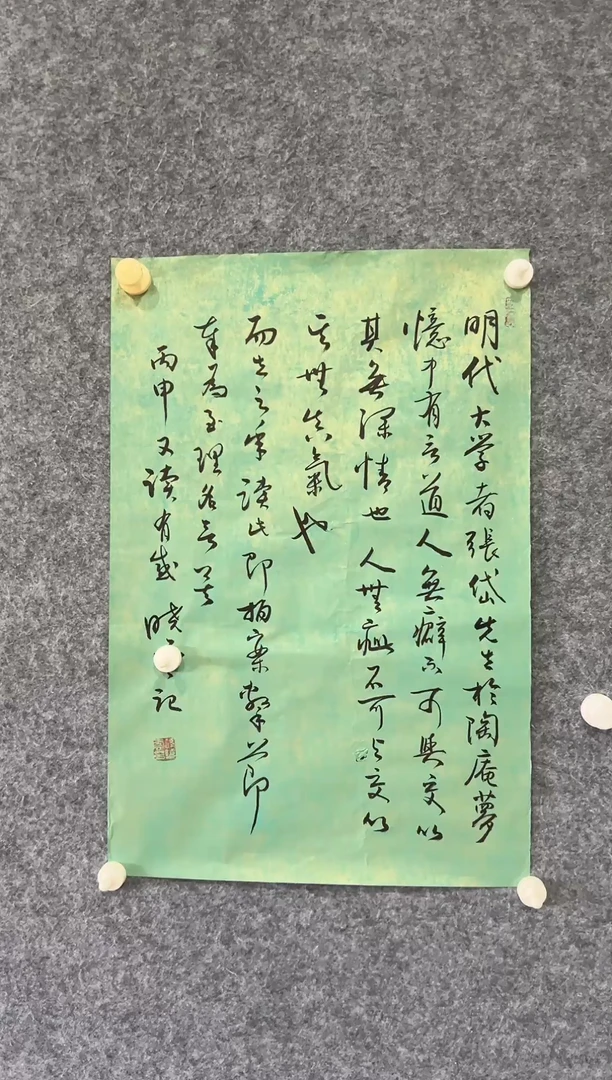 明代大学者張岱先生於陶庵夢
憶中有言道人無癖不可與交以
其無深情也人無疵不可與交以
其無真氣也
而立之年讀此即拍案擊節即
奉為至理名言矣
丙申又讀有感曉記